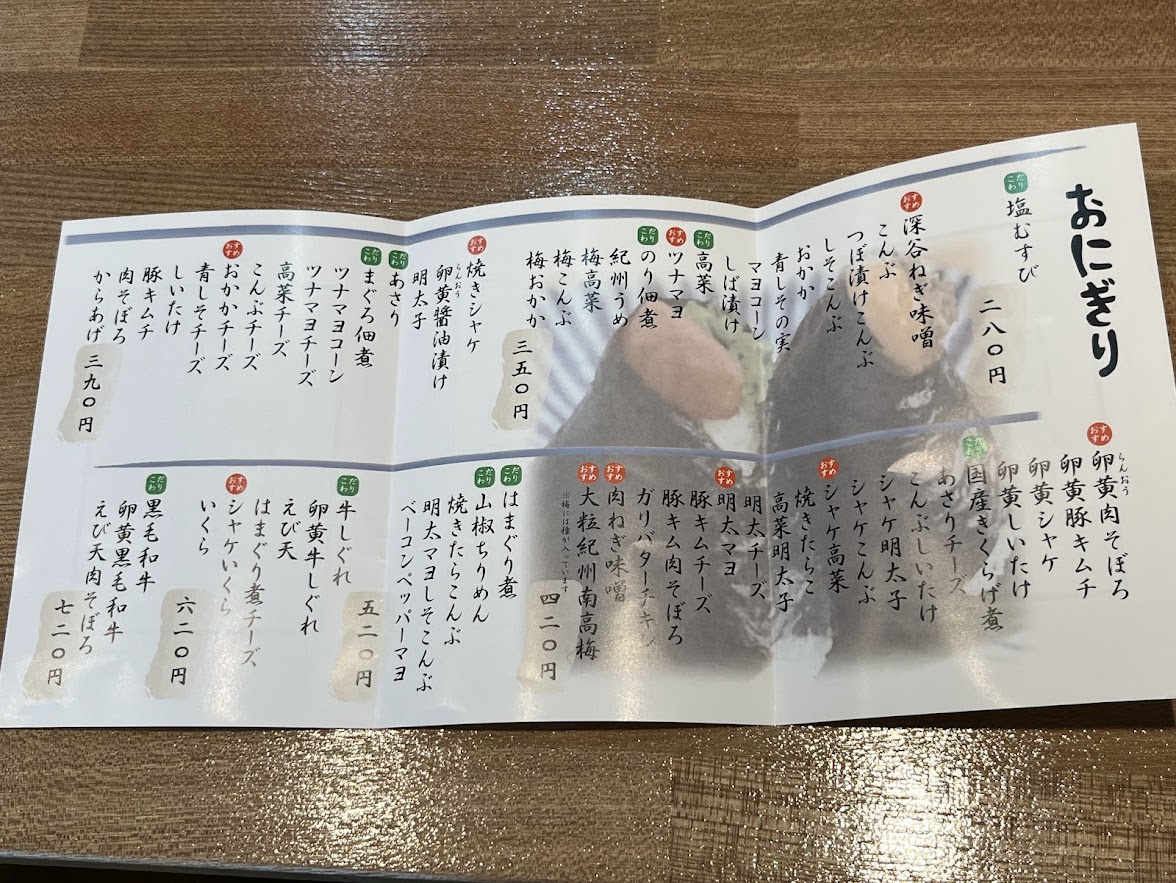 おにぎり
こだわり
塩むすび
二八〇円
おすすめ
深谷ねぎ味噌
こんぶ
つぼ漬けこんぶ
しそこんぶ
おかか
青しその実
マヨコーン
しば漬け
こだわり
高菜
おすすめ
ツナマヨ
こだわり
のり佃煮
紀州うめ
梅高菜
梅こんぶ
梅おかか
三五〇円
おすすめ
焼きシャケ
らんおう
卵黄醬油漬け
明太子
こだわり
あさり
こだわり
まぐろ佃煮
ツナマヨコーン
ツナマヨチーズ
高菜チーズ
こんぶチーズ
おすすめ
おかかチーズ
青しそチーズ
しいたけ
豚キムチ
肉そぼろ
からあげ
三九〇円
おすすめ
らんおう
卵黄肉そぼろ
卵黄豚キムチ
卵黄シャケ
卵黄しいたけ
こだわり
国産きくらげ煮
あさりチーズ
こんぶしいたけ
シャケ明太子
シャケこんぶ
おすすめ
シャケ高菜
焼きたらこ
高菜明太子
明太チーズ
おすすめ
明太マヨ
豚キムチーズ
豚キム肉そぼろ
ガリバターチキン
おすすめ
肉ねぎ味噌
おすすめ
大粒紀州南高梅
※梅には種が入っています
四二〇円
こだわり
はまぐり煮
こだわり
山椒ちりめん
焼きたらこんぶ
明太マヨしそこんぶ
ベーコンペッパーマヨ
五二〇円
こだわり
牛しぐれ
卵黄牛しぐれ
えび天
はまぐり煮チーズ
おすすめ
シャケいくら
いくら
六二〇円
こだわり
黒毛和牛
卵黄黒毛和牛
えび天肉そぼろ
七二〇円